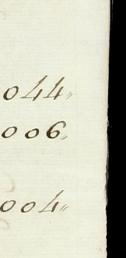 044„
006„
004„